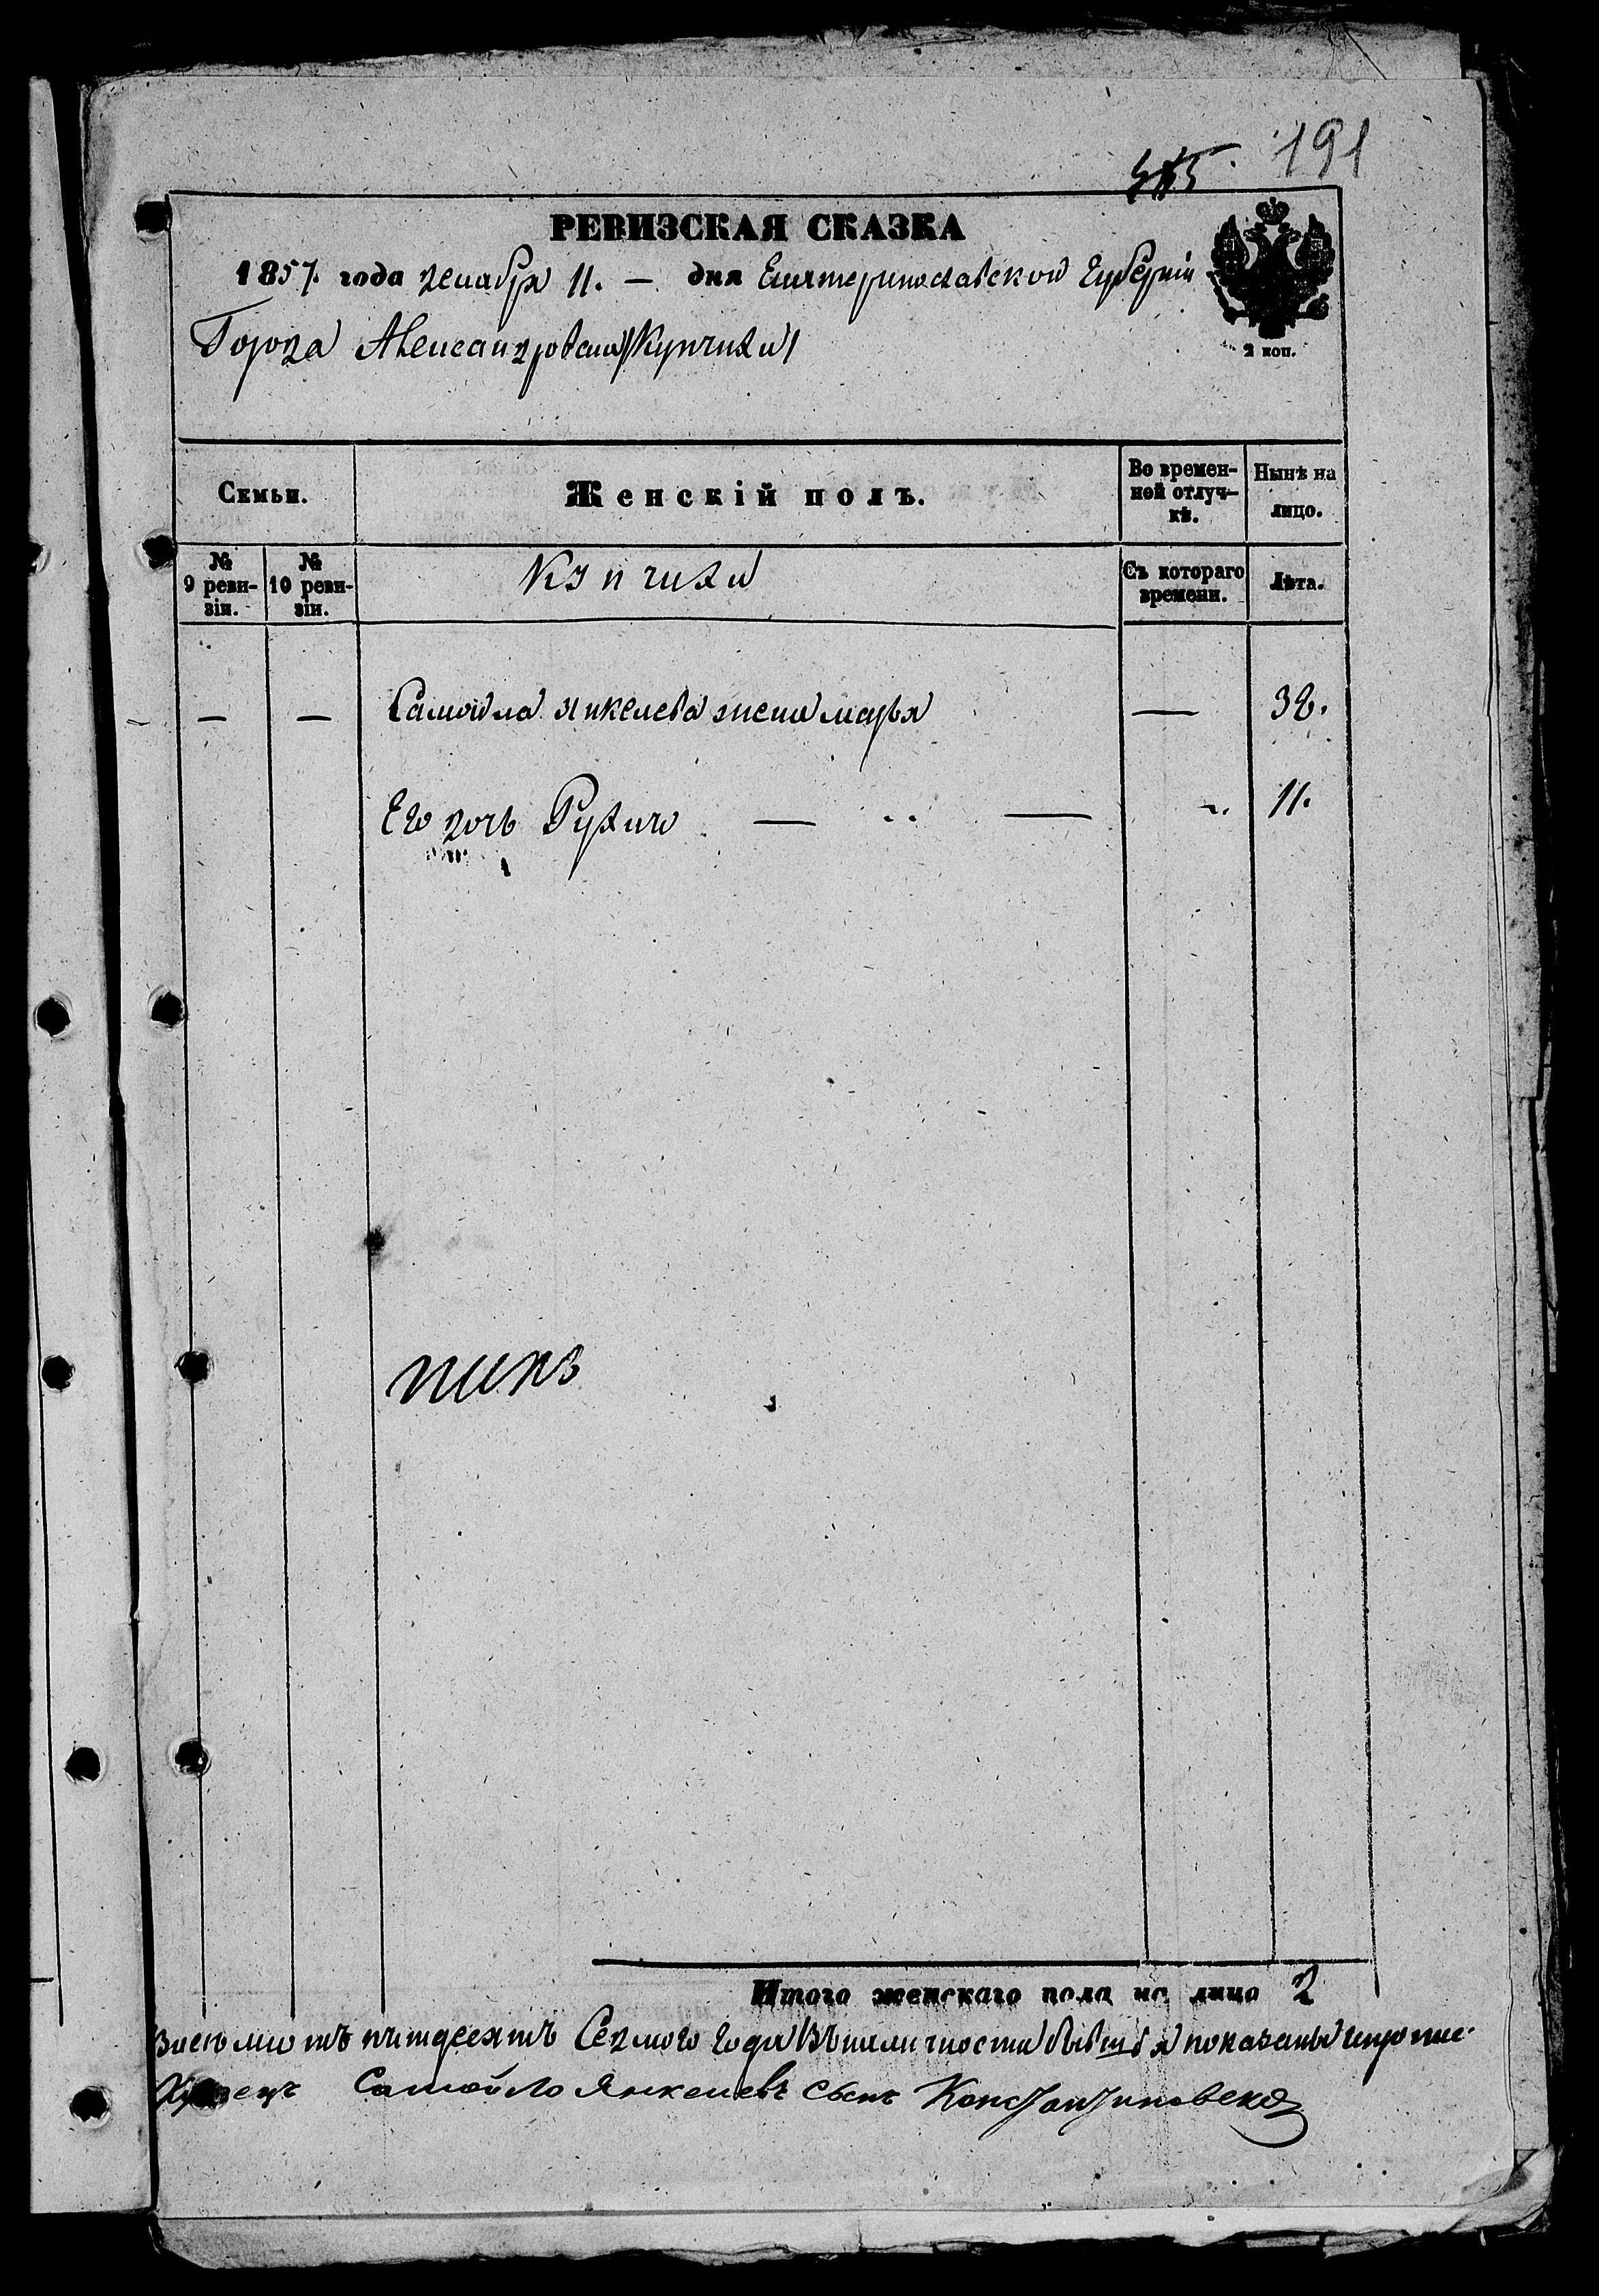 191
РЕВИЗСКАЯ СКАЗКА
1857. года декабря 11. — дня Екатеринославской Губерніи
Города Александровска /Купчихи/
2 коп.
Семьи.
Женскій полъ.
Во времен-
ной отлуч-
кѣ.
Нынѣ на
лицо.
№
9 реви-
зіи.
№
10 реви-
зіи.
Купчихи
Съ котораго
времени.
Лѣта.
— — Самойла Янкелева жена марья — 38.
Его дочь Рухля — „ — „ 11.
Итого женскаго пола на лицо 2
Восемьсотъ пятдесятъ Седмого года Въ наличности
Купецъ Самойло Янкелевъ сынъ Константиновскій